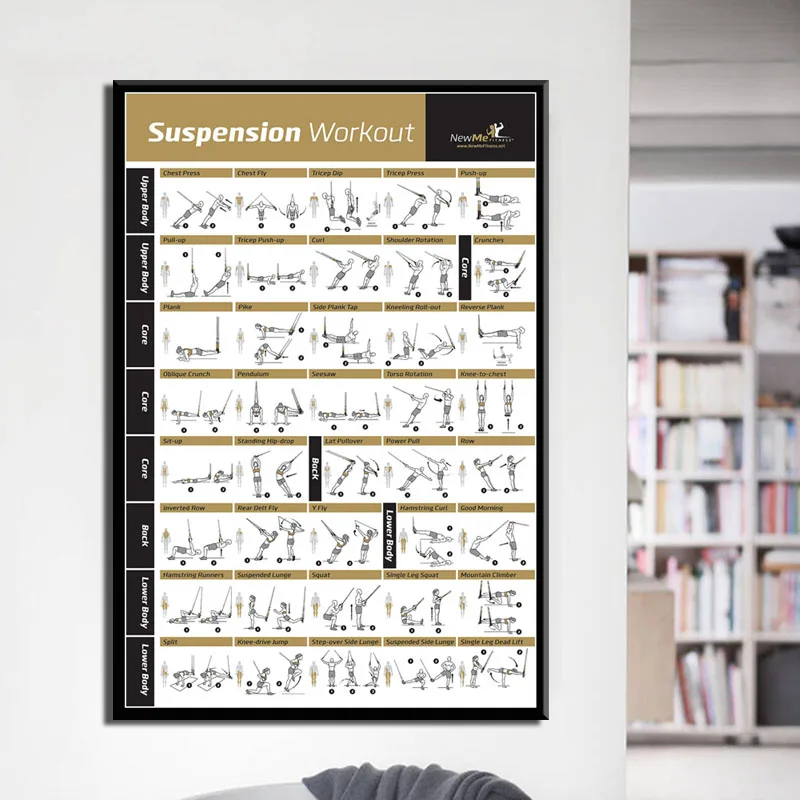 Suspension Workout
NewMe
FITNESS
www.NewMeFitness.net
Upper Body
Chest Press
Chest Fly
Tricep Dip
Tricep Press
Push-up
Upper Body
Pull-up
Tricep Push-up
Curl
Shoulder Rotation
Core
Crunches
Core
Plank
Pike
Side Plank Tap
Kneeling Roll-out
Reverse Plank
Core
Oblique Crunch
Pendulum
Seesaw
Torso Rotation
Knee-to-chest
Core
Sit-up
Standing Hip-drop
Back
Lat Pullover
Power Pull
Row
Back
Inverted Row
Rear Delt Fly
Y Fly
Lower Body
Hamstring Curl
Good Morning
Lower Body
Hamstring Runners
Suspended Lunge
Squat
Single Leg Squat
Mountain Climber
Lower Body
Split
Knee-drive Jump
Step-over Side Lunge
Suspended Side Lunge
Single Leg Dead Lift